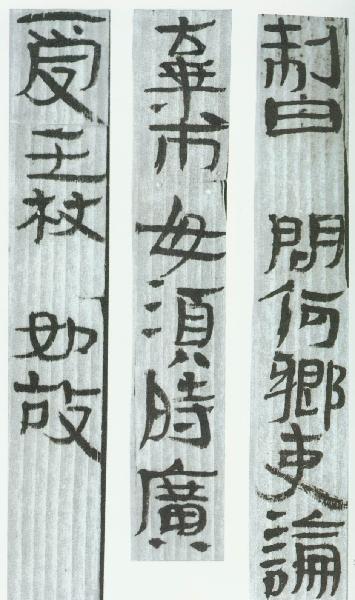 制曰 問何鄉吏論
棄市毋須時廣
受王杖 如故